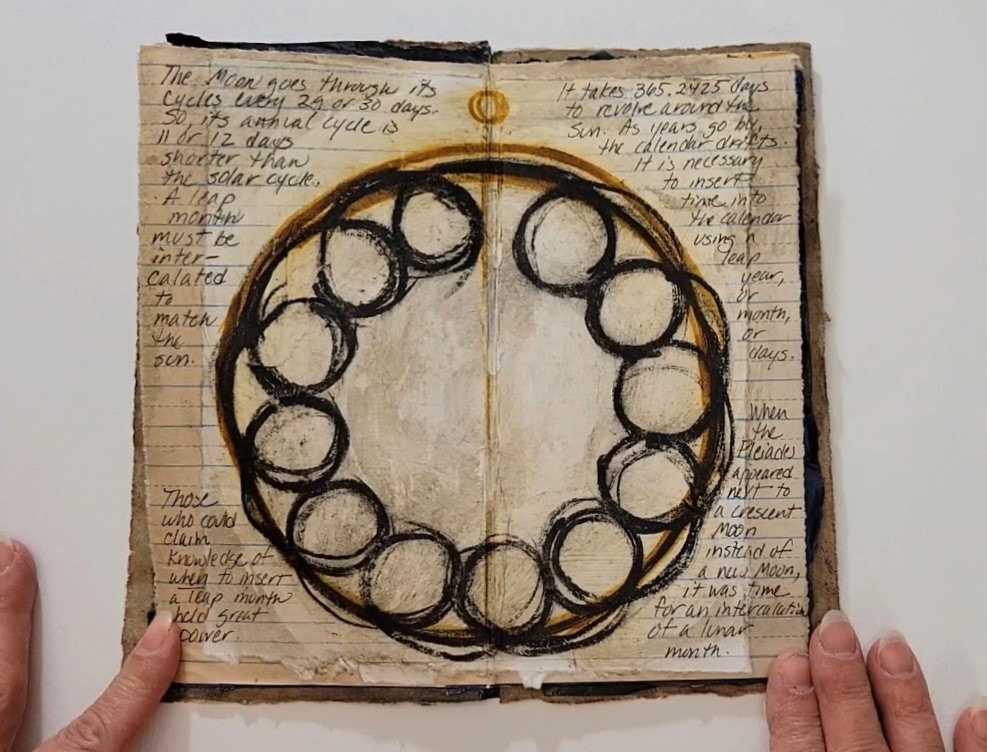 The Moon goes through its
cycles every 29 or 30 days.
So its annual cycle is
11 or 12 days
shorter than
the solar cycle.
A leap
month
must be
inter-
calated
to
match
the
sun.
Those
who could
claim
knowledge of
when to insert
a leap month
held great
power.
It takes 365.2425 days
to revolve around the
sun. As years go by,
the calendar drifts.
It is necessary
to insert
time into
the calendar
using a
leap
year,
or
month,
or
days.
When
the
Pleiades
appeared
next to
a crescent
Moon
instead of
a new Moon,
it was time
for an intercalation
of a lunar
month.